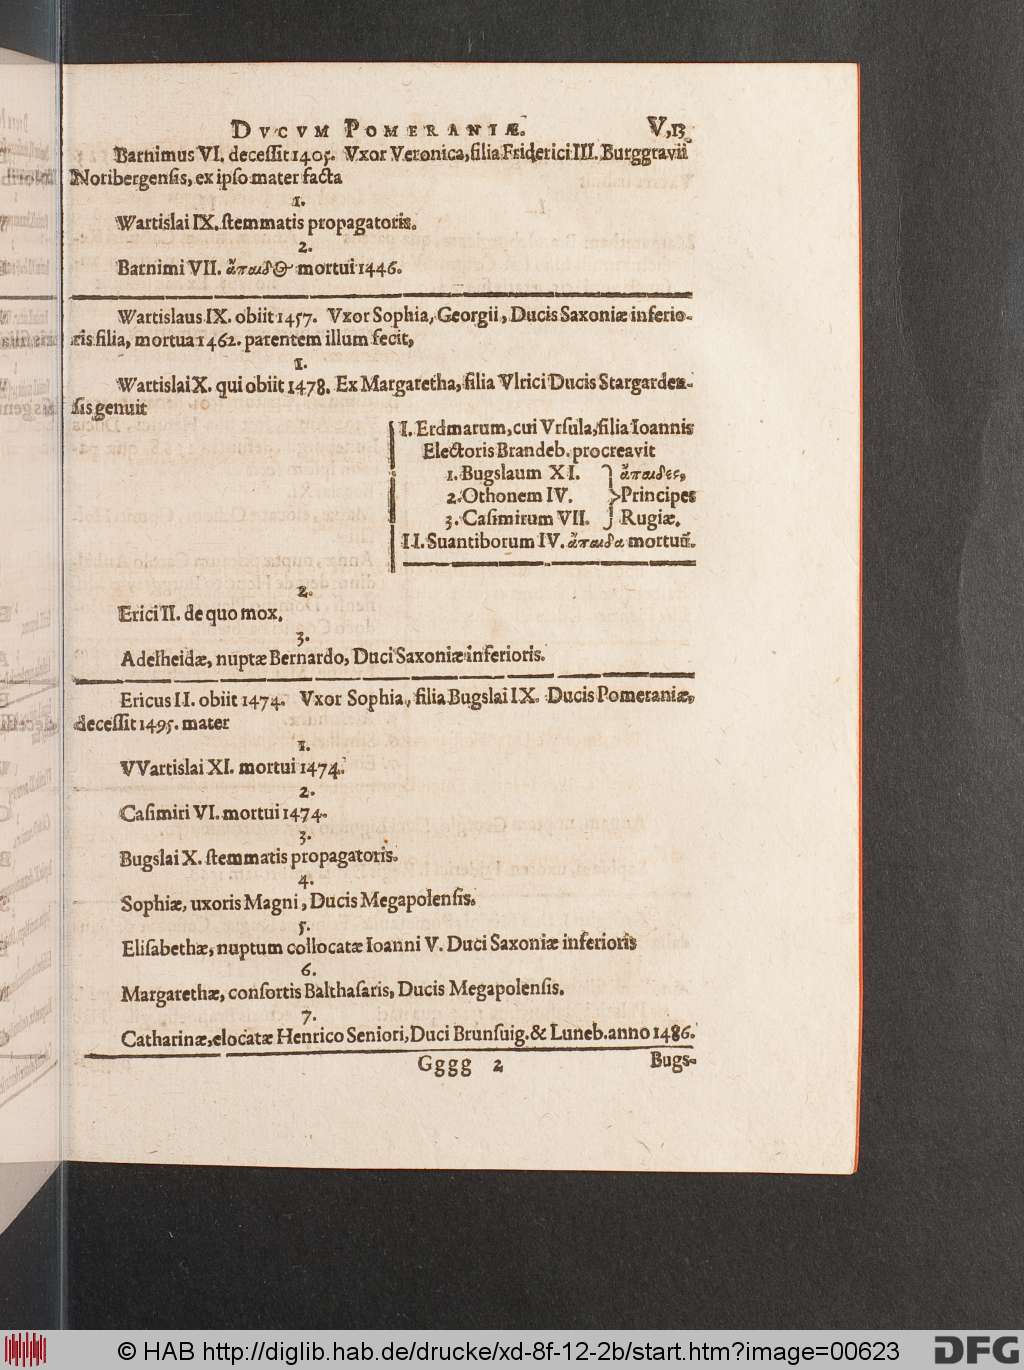 DVCVM POMERANIÆ. V,13
Barnimus VI. deceſſit 1405. Vxor Veronica, filia Friderici III. Burggravii
Noribergenſis, ex ipſo mater facta
1.
Wartislai IX. ſtemmatis propagatoris.
2.
Barnimi VII. ἄπαιδος mortui 1446.
Wartislaus IX. obiit 1457. Vxor Sophia, Georgii, Ducis Saxoniæ inferio-
ris filia, mortua 1462. parentem illum fecit,
1.
Wartislai X. qui obiit 1478. Ex Margaretha, filia Vlrici Ducis Stargarden-
ſis genuit
I. Erdmarum, cui Vrſula, filia Ioannis
Electoris Brandeb. procreavit
1. Bugslaum XI. ἄπαιδες,
2. Othonem IV. Principes
3. Caſimirum VII. Rugiæ.
II. Suantiborum IV. ἄπαιδα mortuū.
2.
Erici II. de quo mox.
3.
Adelheidæ, nuptæ Bernardo, Duci Saxoniæ inferioris.
Ericus II. obiit 1474. Vxor Sophia, filia Bugslai IX. Ducis Pomeraniæ,
deceſſit 1495. mater
1.
VVartislai XI. mortui 1474.
2.
Caſimiri VI. mortui 1474.
3.
Bugslai X. ſtemmatis propagatoris.
4.
Sophiæ, uxoris Magni, Ducis Megapolenſis.
5.
Eliſabethæ, nuptum collocatæ Ioanni V. Duci Saxoniæ inferioris
6.
Margarethæ, conſortis Balthaſaris, Ducis Megapolenſis.
7.
Catharinæ, elocatæ Henrico Seniori, Duci Brunſuig. & Luneb. anno 1486.
Gggg 2 Bugs-
© HAB http://diglib.hab.de/drucke/xd-8f-12-2b/start.htm?image=00623
DFG